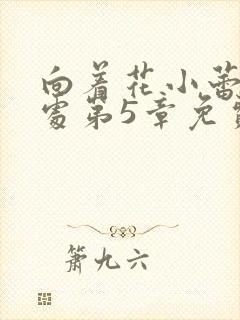 向着花小蕾
处第5章免费
箫九六